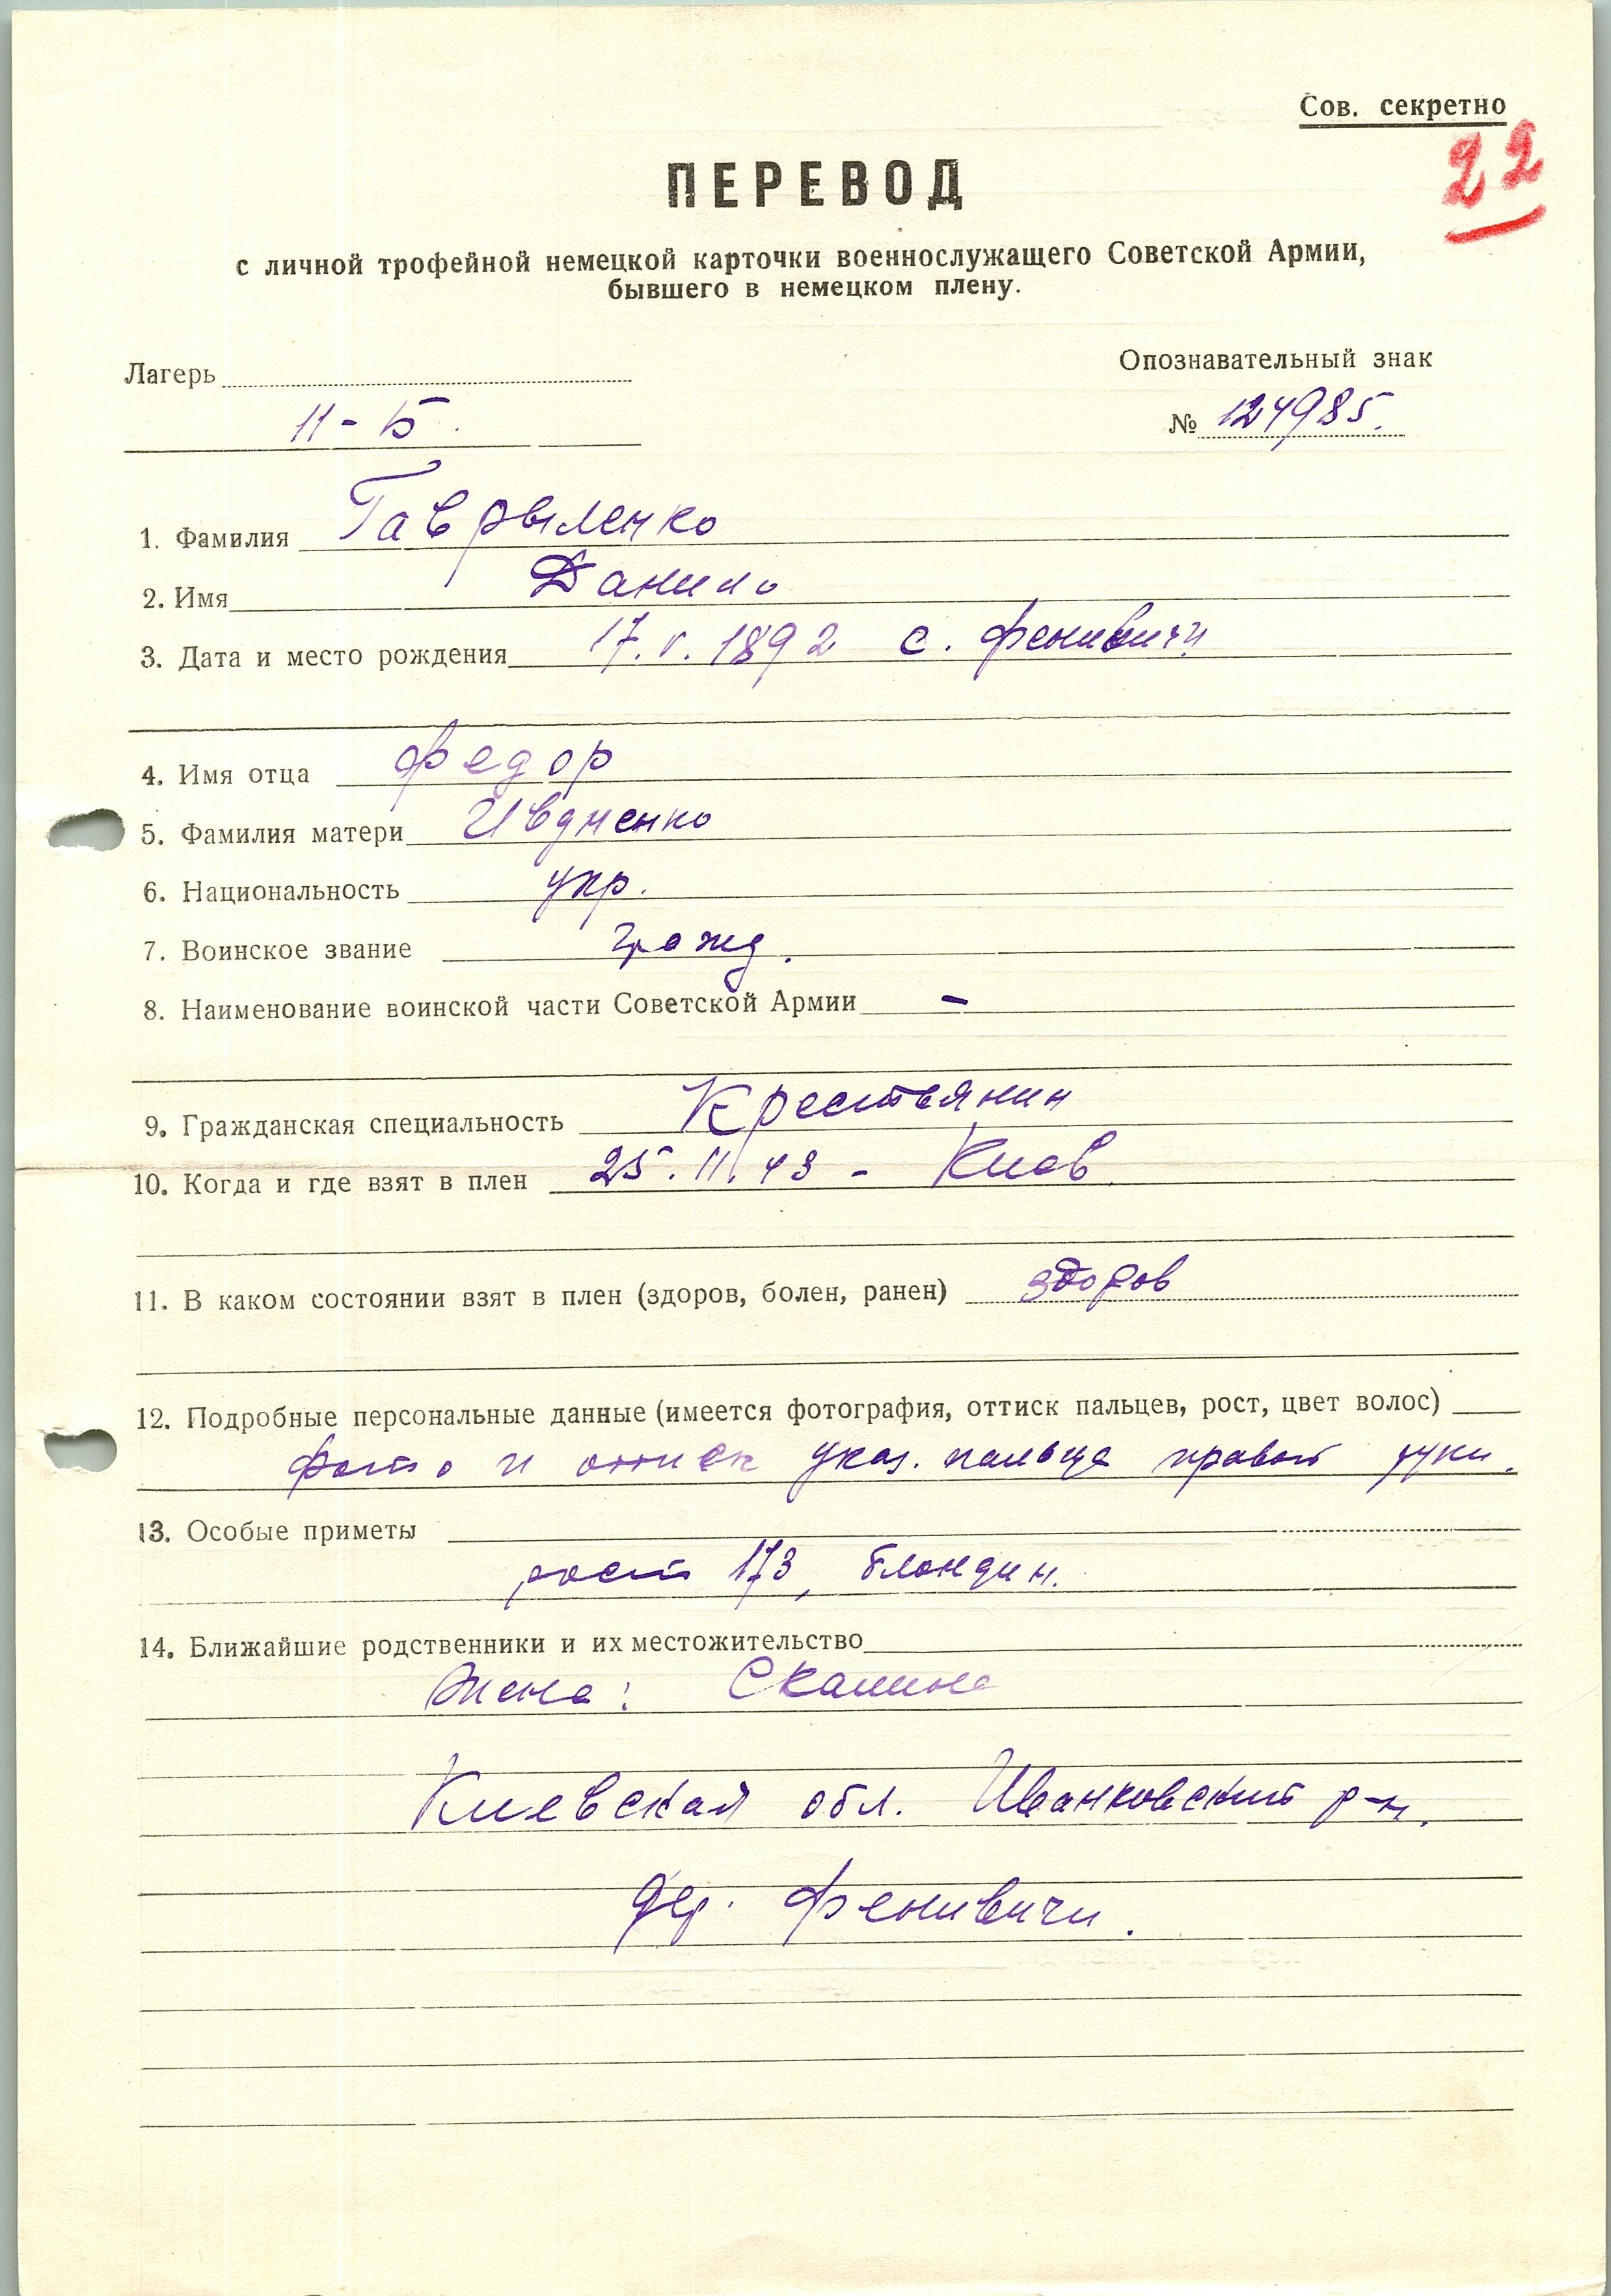 Сов. секретно
22
ПЕРЕВОД
с личной трофейной немецкой карточки военнослужащего Советской Армии,
бывшего в немецком плену.
Лагерь
11-Б.
Опознавательный знак
№ 124985.
1. Фамилия Гаврыленко
2. Имя Данило
3. Дата и место рождения 17.V.1892 с. Фенивичи
4. Имя отца Федор
5. Фамилия матери
6. Национальность укр.
7. Воинское звание гражд.
8. Наименование воинской части Советской Армии –
9. Гражданская специальность Крестьянин
10. Когда и где взят в плен 25.11.43 - Киев.
11. В каком состоянии взят в плен (здоров, болен, ранен) здоров
12. Подробные персональные данные (имеется фотография, оттиск пальцев, рост, цвет волос)
фото и оттиск указ. пальца правой руки.
13. Особые приметы
рост 173, блондин.
14. Ближайшие родственники и их местожительство
Жена:
Киевская обл. Иванковский р-н.
дер. Фенивичи.